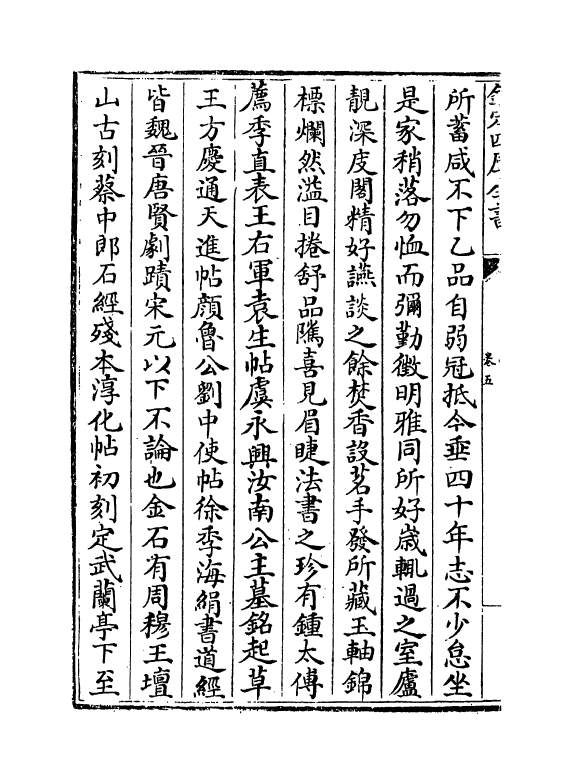 欽定四庫全書
卷五
所蓄咸不下乙品自弱冠抵今垂四十年志不少怠坐
是家稍落勿恤而彌勤徵明雅同所好嵗輒過之室廬
靚深庋閣精好讌談之餘焚香設茗手發所藏玉軸錦
標爛然溢目捲舒品隲喜見眉睫法書之珍有鍾太傅
薦季直表王右軍袁生帖虞永興汝南公主墓銘起草
王方慶通天進帖顔魯公劉中使帖徐季海絹書道經
皆魏晉唐賢劇蹟宋元以下不論也金石有周穆王壇
山古刻蔡中郎石經殘本淳化帖初刻定武蘭亭下至